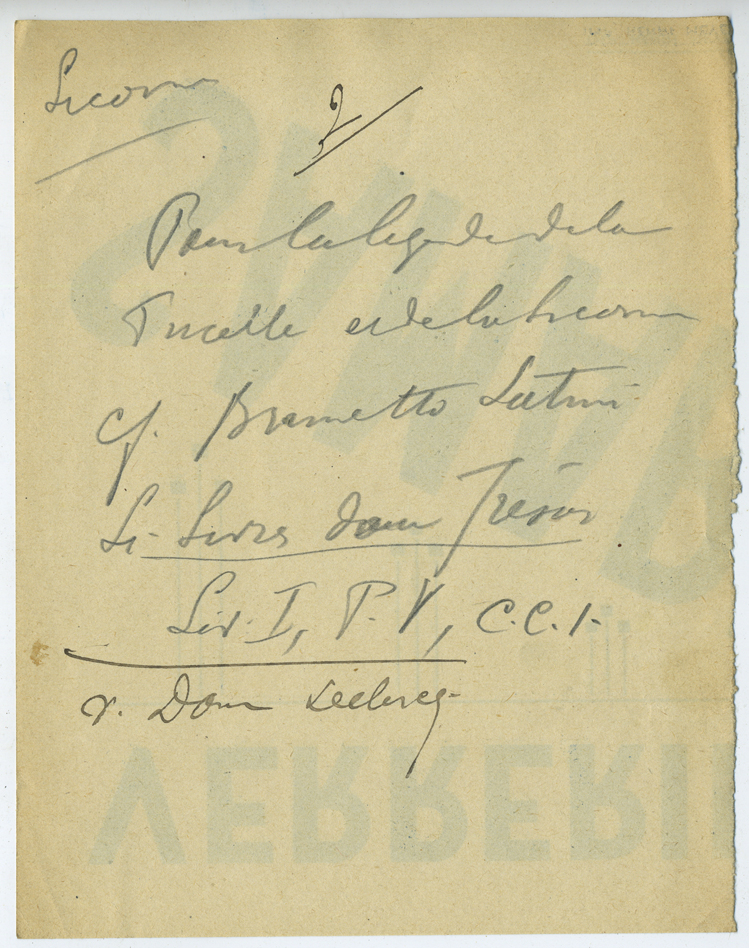 Licorne
2/
Pour la légende de la
Pucelle et de la licorne
cf. Brunetto Latini
Li Livres dou Trésor
Liv. I, P. V, C.C.I.
v. Dom Leclercq
VERRERI